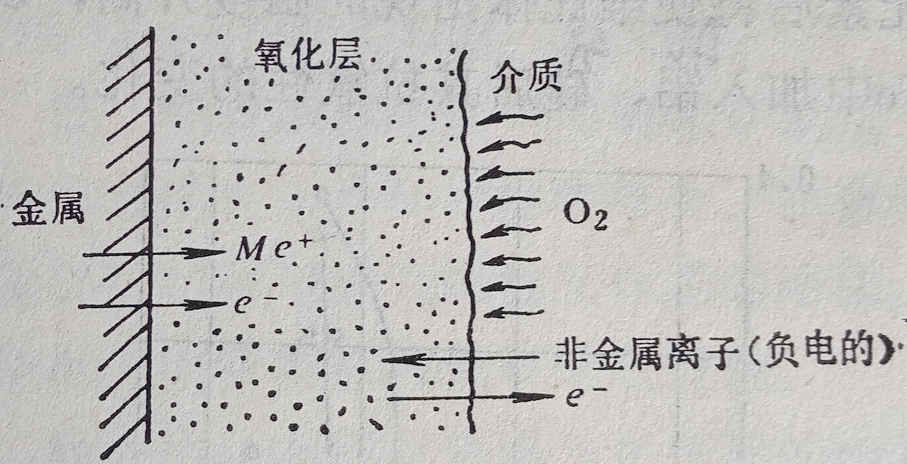 氧化层
介质
金属
O₂
Me⁺
e⁻
非金属离子(负电的)
e⁻